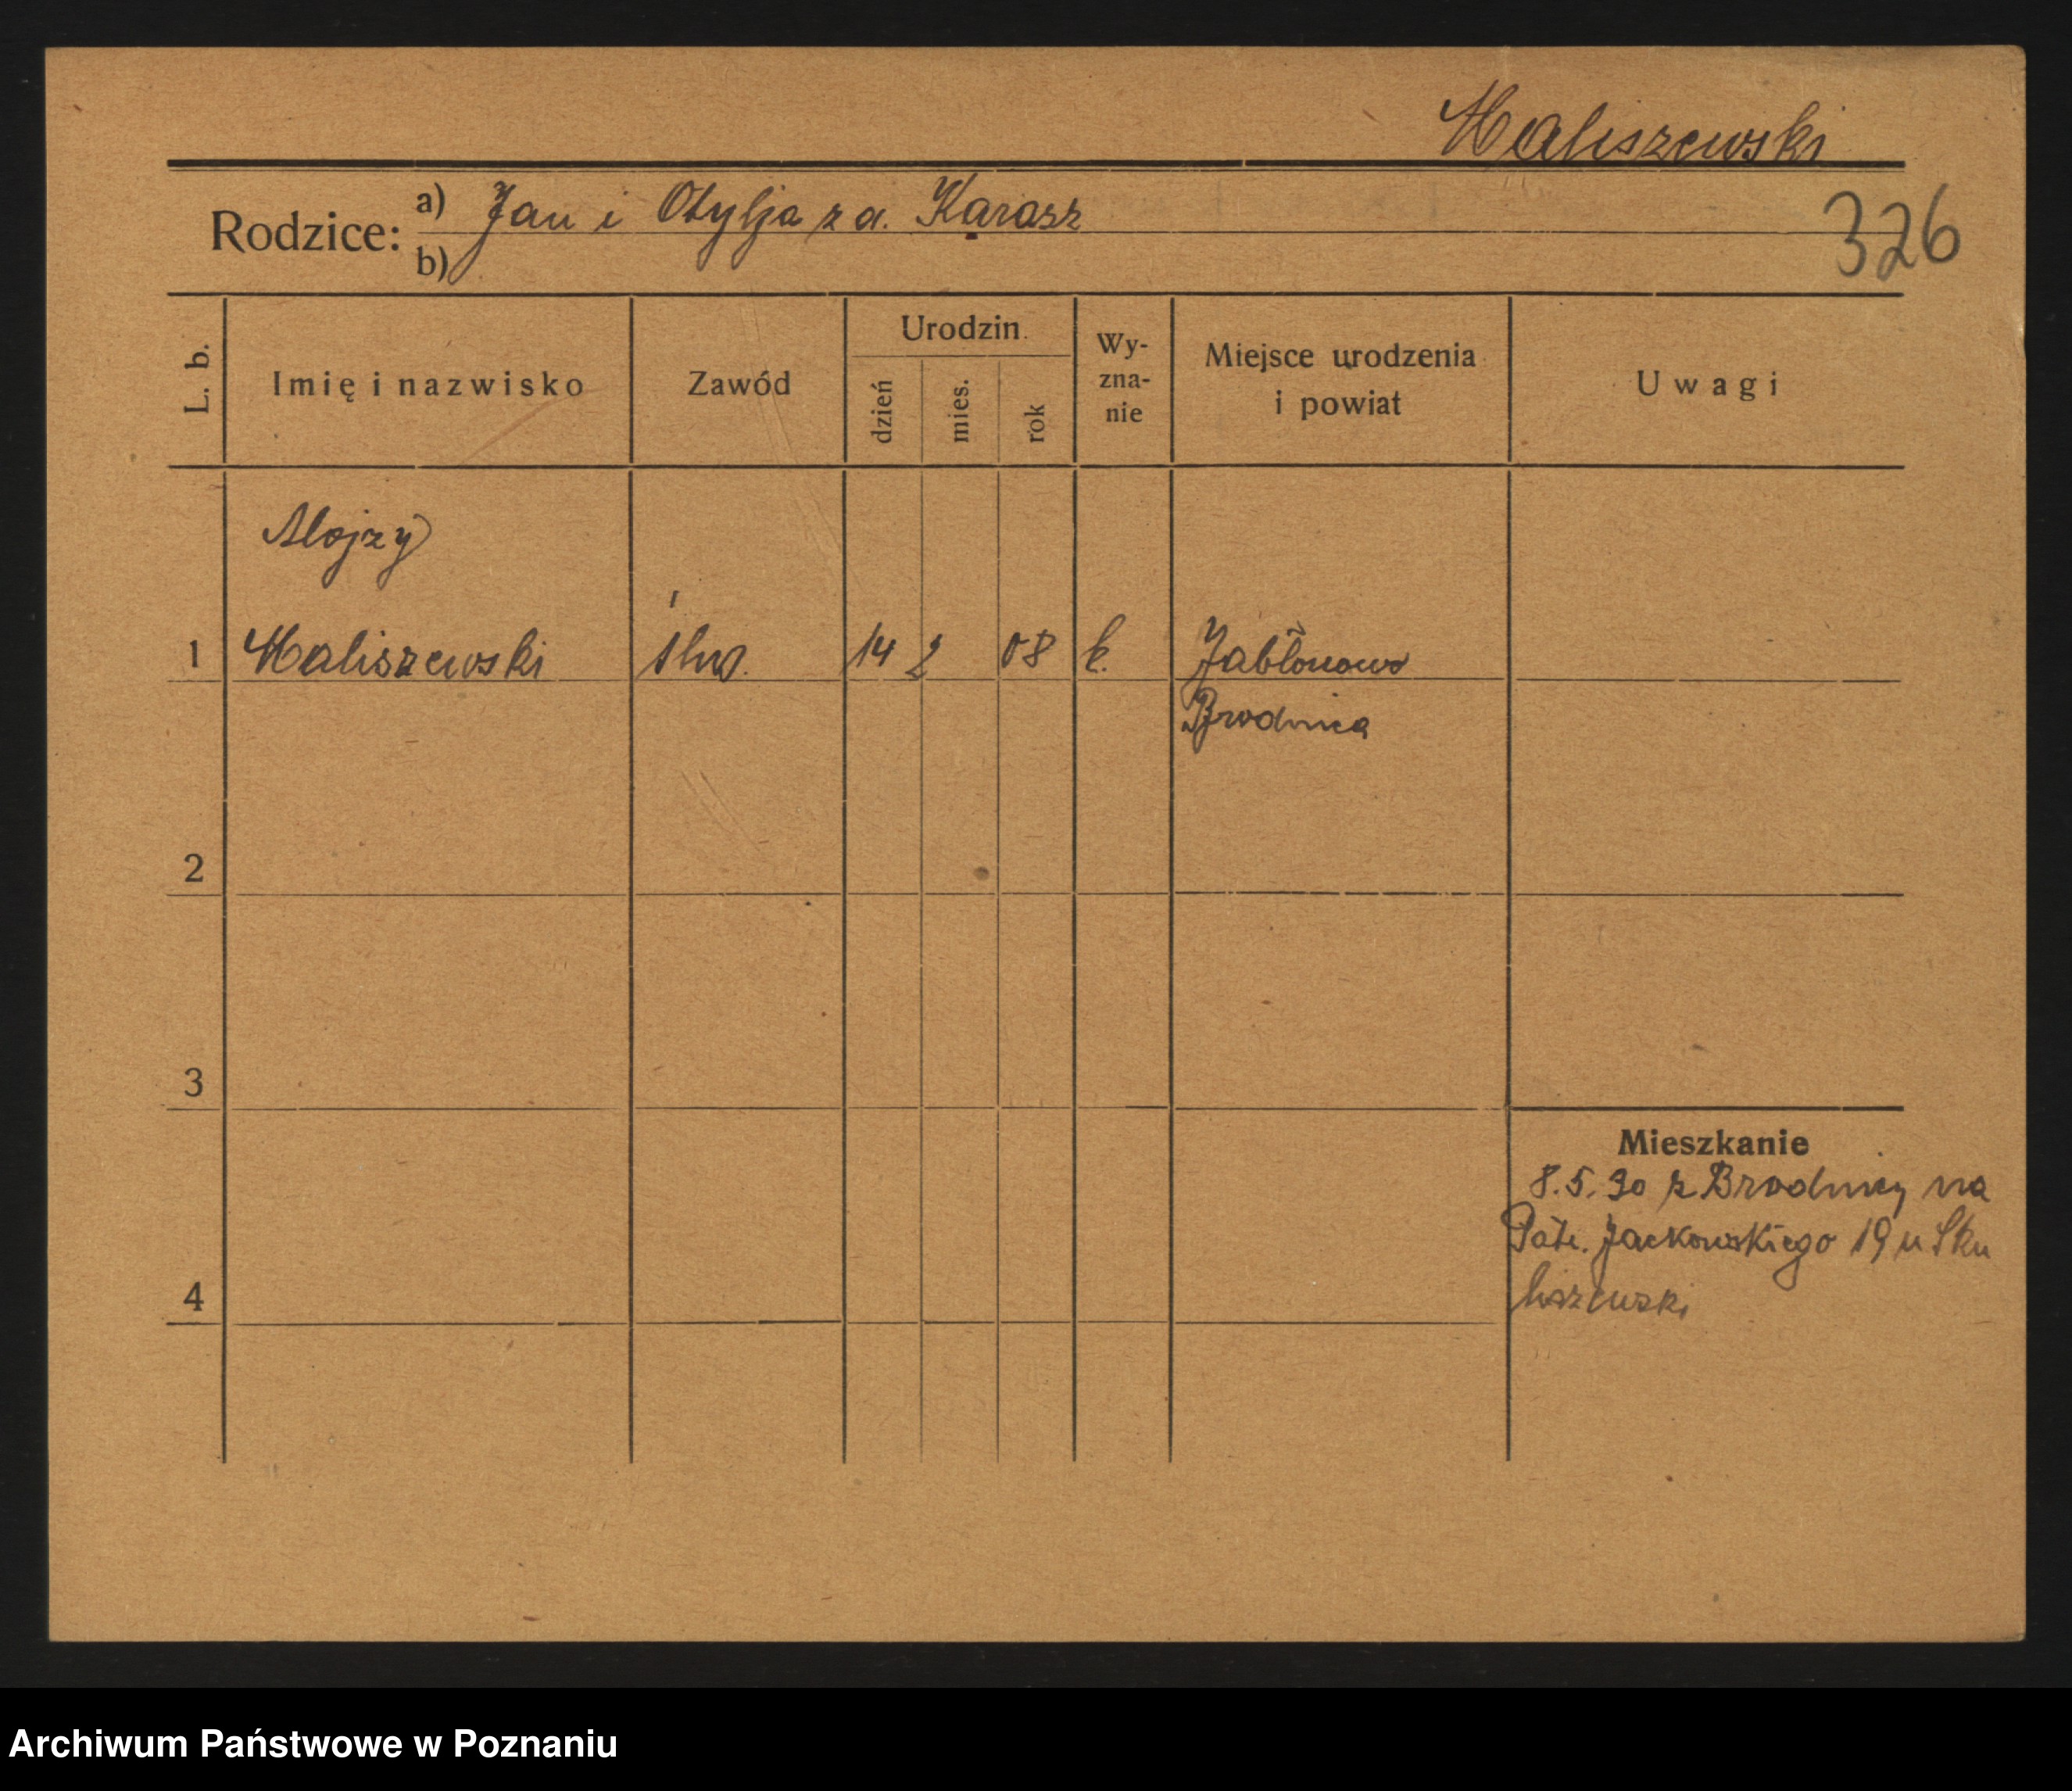 Maliszewski
Rodzice: a) Jan i Otylja z d. Karasz
b)
326
L. b.
Imię i nazwisko
Zawód
Urodzin
dzień
mies.
rok
Wy-
zna-
nie
Miejsce urodzenia
i powiat
Uwagi
Alojzy
1 Maliszewski ślus. 14 2 08 k. Jabłonowo
Brodnica
2
3
Mieszkanie
8.5.30 z Brodnicy na
Patr. Jackowskiego 19 u Sku
liszewski
4
Archiwum Państwowe w Poznaniu